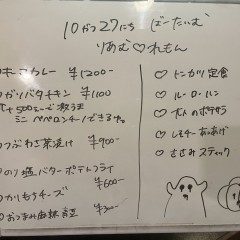 10がつ27にち ばーたいむ
りあむ♡れもん
キーマカレー ¥1200-
ガリバタチキン ¥1100
+500えーで 救うま
ミニ ペペロンチーノできるよ。
つぶわさ茶漬け ¥900-
のり塩バターポテトフライ
¥600-
かりもちチーズ
おつまみ
¥300-
♡ トンカツ定食
♡ ルーローハン
♡ 大人のポテサラ
♡
♡ ささみスティック